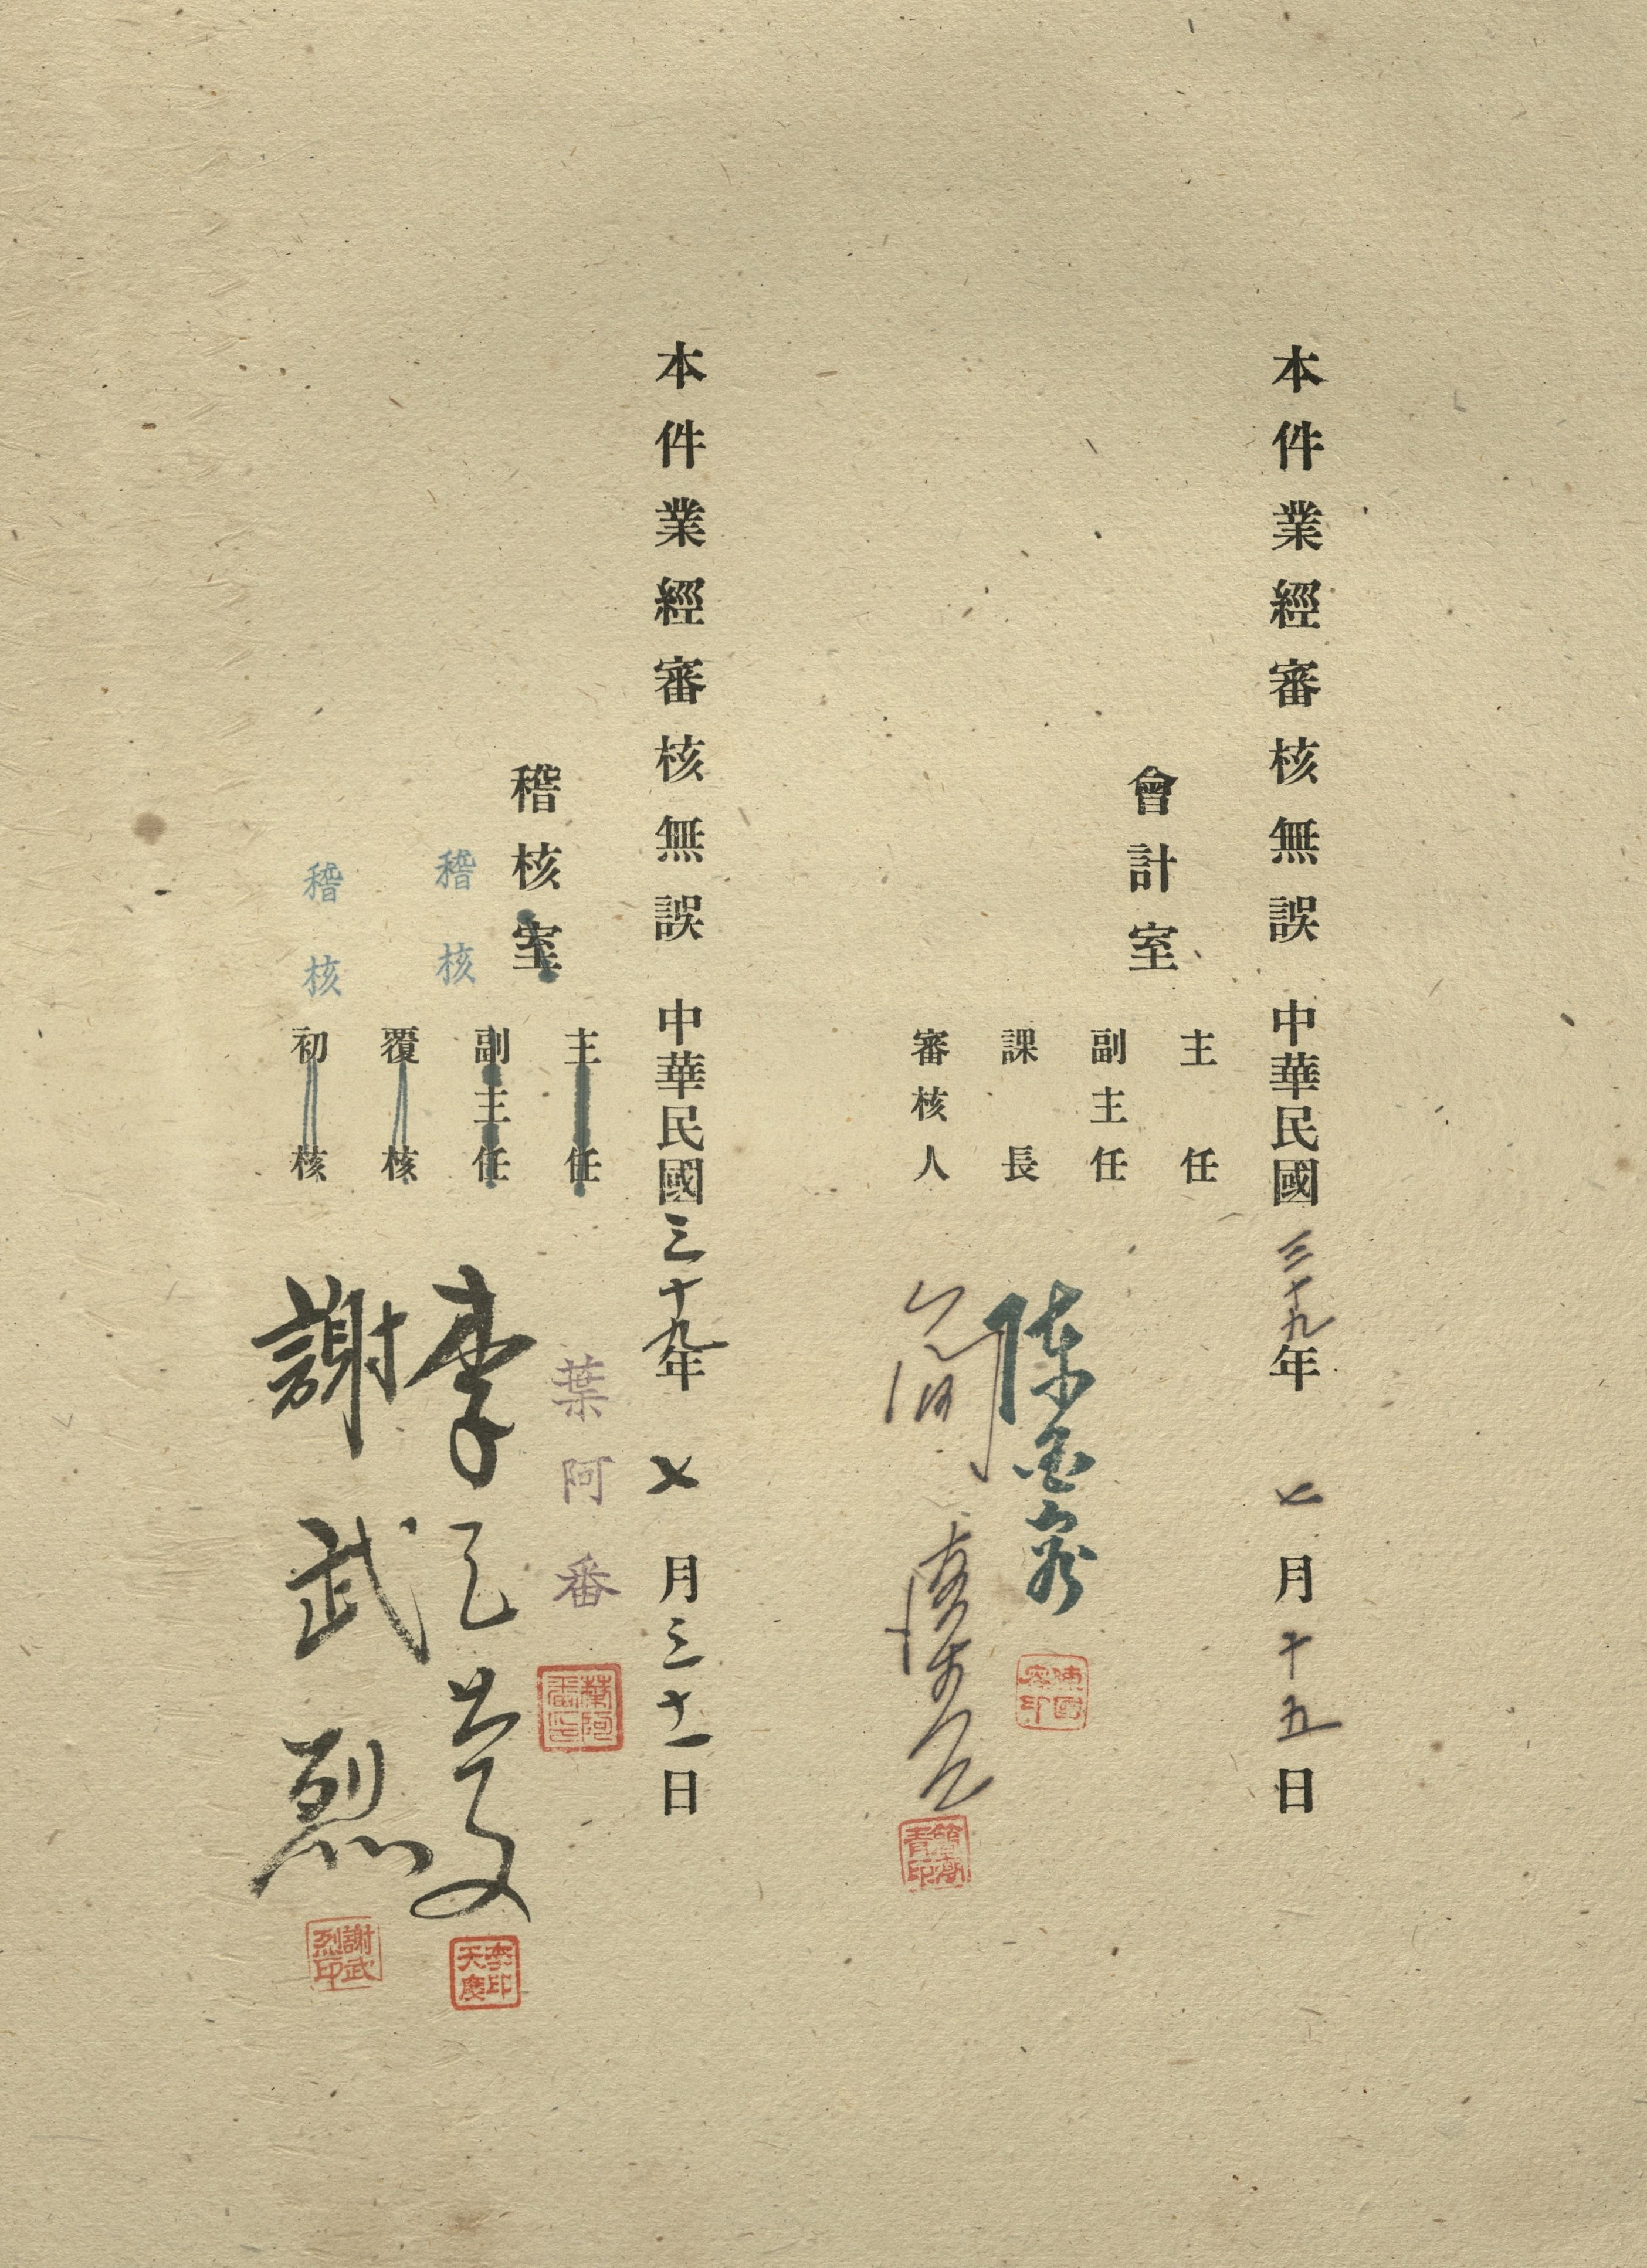 本件業經審核無誤 中華民國三十九年七月十五日
會計室
主任
副主任
課長
審核人
陳
簡
簡潮青印
本件業經審核無誤 中華民國三十九年七月三十一日
稽核室
主任
葉阿番
葉阿番印
副主任
稽核
李天慶
李天慶印
覆核
稽核
初核
謝武烈
謝武烈印